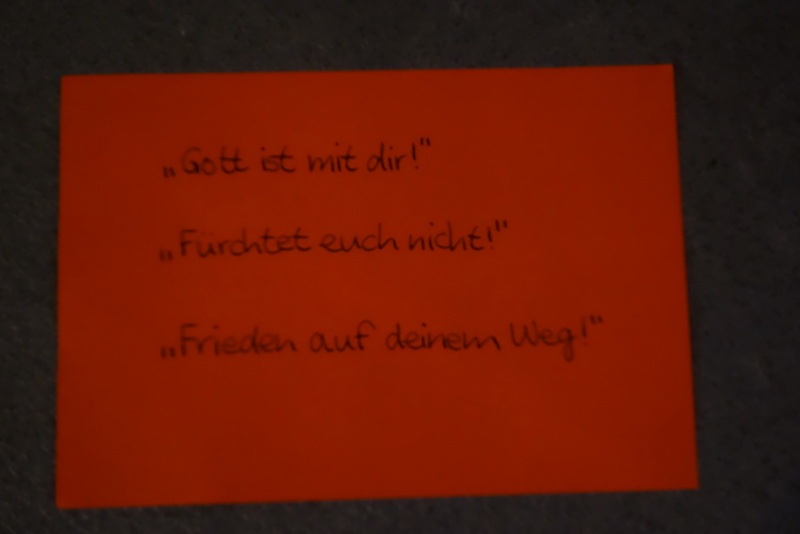 „Gott ist mit dir!"
„Fürchtet euch nicht!"
„Frieden auf deinem Weg!"